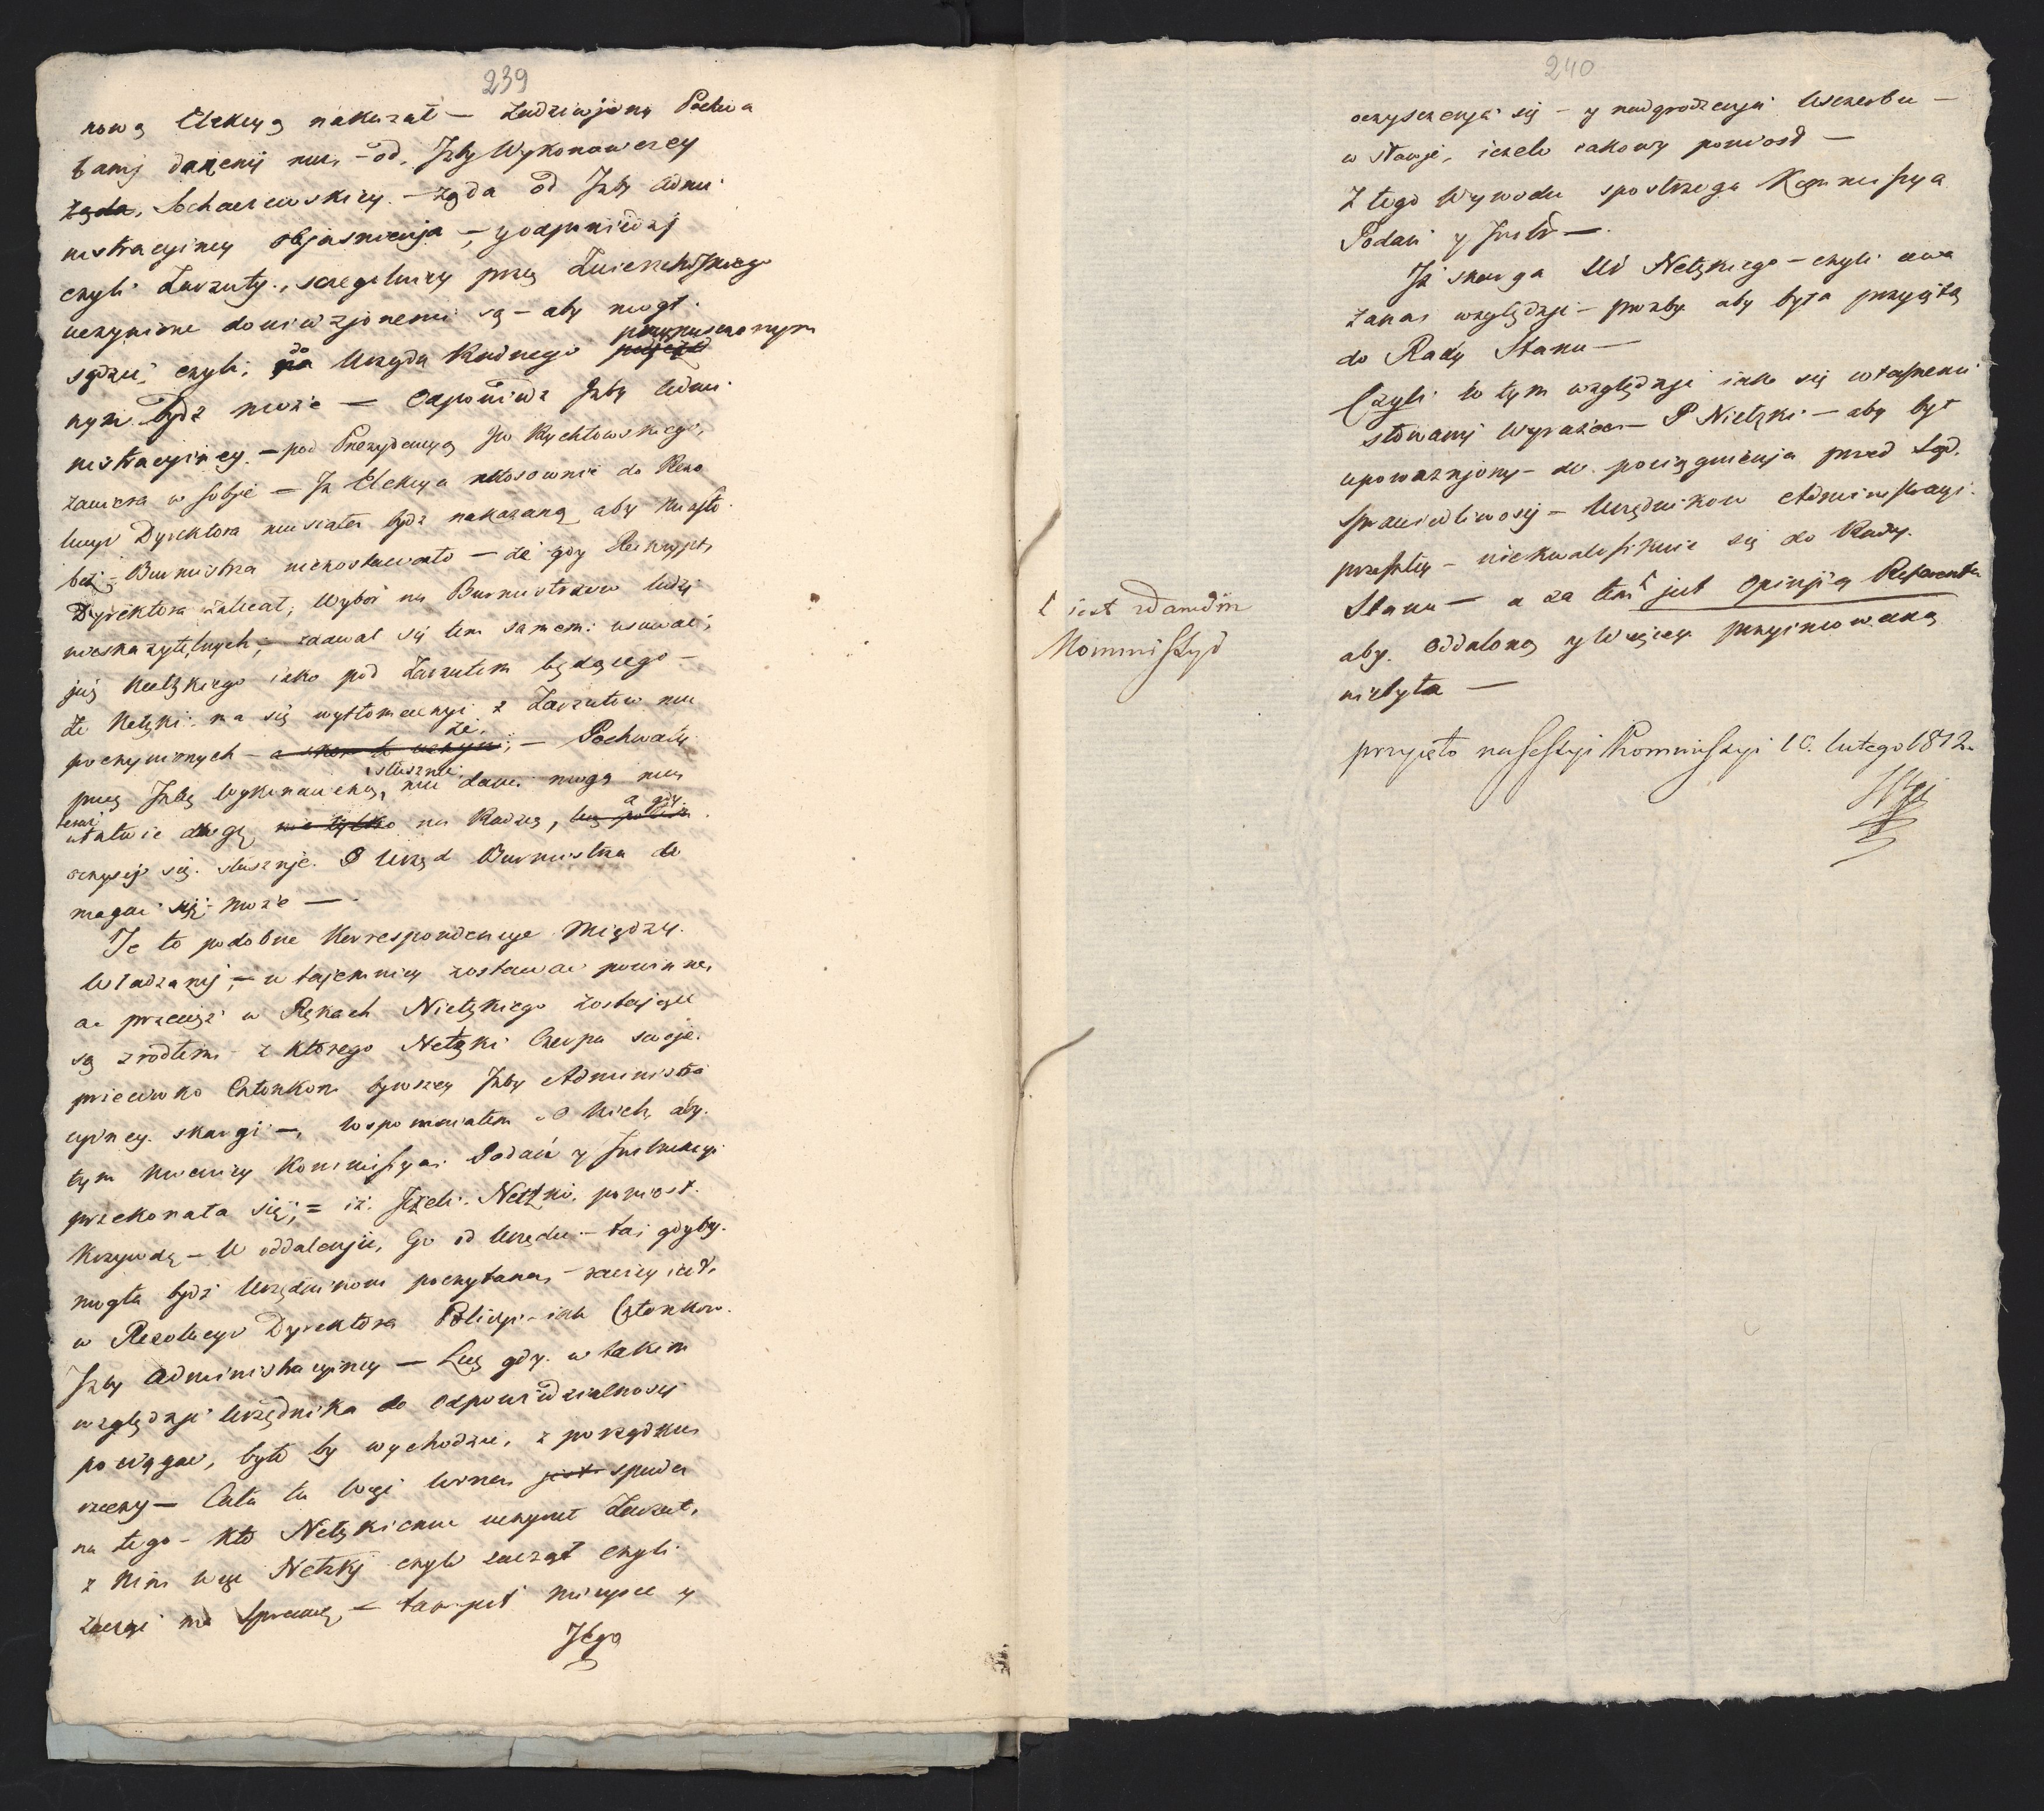 239
nową Elekcyą nakazał — Zadziwiony Pochwa
łamj danemj mu, — od, Jzby Wykonawczey
Sochaczewskiey. — żąda od Jzby Admi
nistracyiney objasnienja —, y odpowiedzj
czyli Zarzuty, sczegulniey przez Zwierzchoskiego
uczynione dowiedzjonemi są — aby mogł
sądzić, czyli, do Urzędu Radnego przypuszczonym
bydź może — Odpowiedz Jzby Admi
nistracyiney. — pod Prezydencyą JW Rychłowskiego,
zawiera w sobje — Jż Elekcya stosownie do Rezo
lucyi Dyrektora musiała bydź nakazaną aby Miasto
bez Burmistrza niezostawało — że gdy Reskrypt,
Dyrektora zalecał, Wybor na Burmistrzow ludzi
nieskazytelnych, — zdawał się tem samem usuwać,
już Netzkiego jako pod Zarzutem będącego —
że Netzki ma się wytłomaczyć z Zarzutow mu
poczynionych — że, — Pochwały
przez Jzbę Wykonawczą, słusznie mu dane mogą mu
utatwic drogę na Radzcę, a gdy
oczyści się słusznje O Urząd Burmistrza do
magać się może —
Że to podobne Korrespondencye między
Władzamj, — w tajemnicy zostawać powinne,
a przecież w Rękach Nietzkiego zostając
są zrodłem z ktorego Netzki Czerpa swoje
przeciwko Członkom bywszey Jzby Administra
cyiney skargi —, wspomniałem o Nich, aby
tym mocniey Kommissya Podań y Jnstrukcyi
przekonała się, = iż Jeżeli Netzki poniosł
Krzywdę — W oddalenju, Go od Urzędu — ta, gdyby
mogła bydź Urzędnikom poczytana, — raczey jest
w Rezolucyi Dyrektora Policyi jak Członkow
Jzby Administracyiney — Lecz gdy w takim
względzje Urzędnika do odpowiedzialnosci
pociągac, było by wychodzic, z porządku
rzeczy — Cała tu więc Wina spada
na tego — kto Netzkiemu uczynił Zarzut,
z Nim więc Netzkj czyli zaczął czyli
zacząć ma Sprawę, — tam jest mieysce y
Jego
240
oczyszczenja się — y nadgrodzenja Uszczerbu —
w Stawje, jezeli jakowy poniosł —
Z tego Wywodu spostrzega Kommissya
Podań y Jnstr —
Jż skarga Ur Netzkiego — czyli owa
zanas względzje — prozby aby była przyjętą
do Rady Stanu —
Czyli w tym względzje jako się własnemi
słowamj wyraża — P Nietzki — aby był
upoważnjony — do pociągnienja przed Sąd
Sprawiedliwoscj — Urzędnikow Administracyi
przeszłey — niekwalifikuje się do Rady
Stanu — a za tem jest Opinją Referenta
aby oddaloną y Więcey przyimowaną
niebyła —
jest zdaniem
Kommissyi
przyięto na Sessyi Kommissyi 10. lutego 1812.